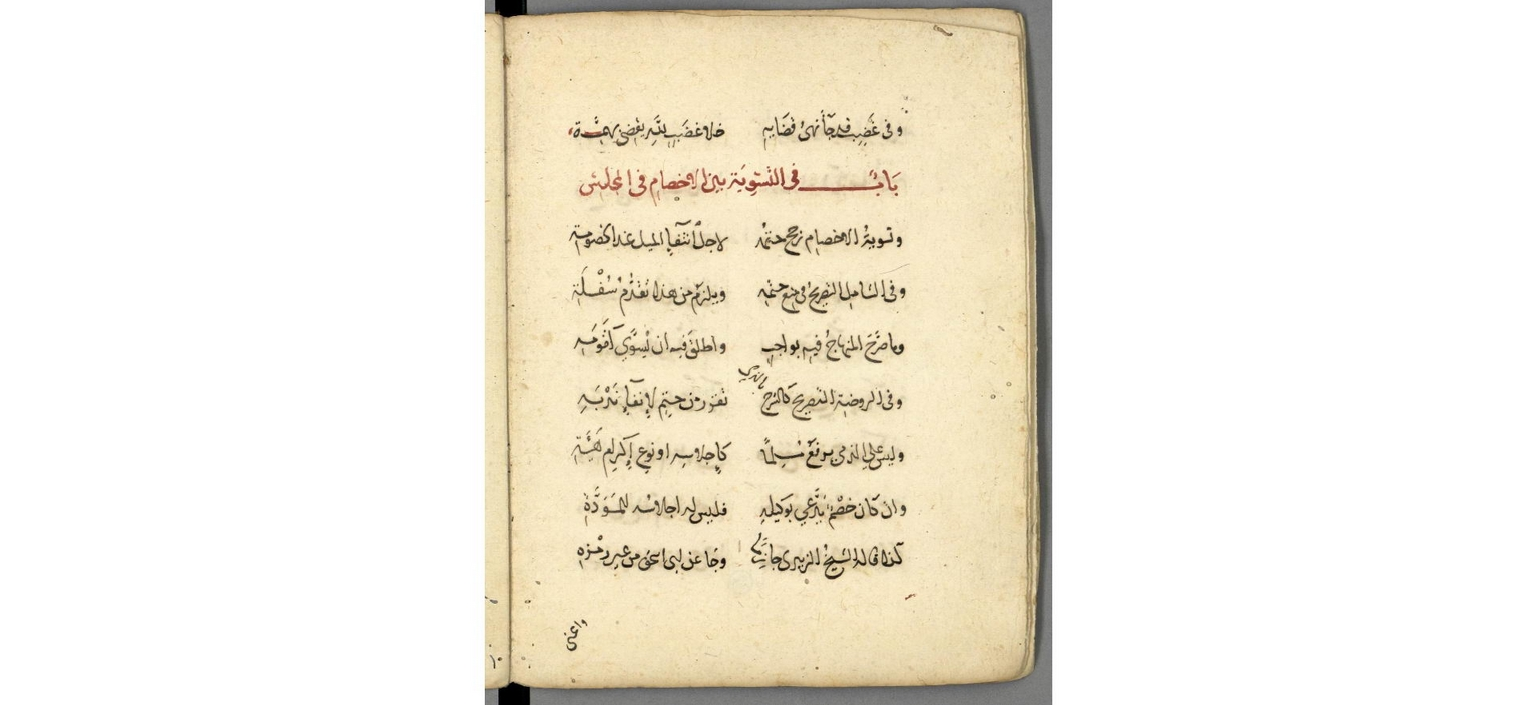 وفى غَضَبٍ قد جَاءَ نهىُ قضَايهِ خلا غضبٍ للهِ يقضى بهمَّةِ
بَابُ فى التسْوِيَة بين الاخصام فى المجلسْ
وتسوية الاخصام رَجح حتمُه لاجل انتفآءِ الميل عند الخصومة
وفى الشامل التصريحُ فى منع حتمه ويلزم من هذا تقدُّمُ سُفْلَة
وما صَرَّح المنهاجُ فيهِ بواجبٍ واطلقَ فيه ان يُسَوِّي
وفى الروضة التصريح كالشرح تقرر من حتمٍ لإنفآءِ
وليس على الذمى يرفَعْ مُسلمًا كإجلاسه او نوع إكرام هَيْئَة
وان كان خصْمٌ يدَّعي بوكيلهِ فليس له اجلاسُه للمَوَدَّةْ
كذا قاله الشيخُ الزبيرى جا وجَا عن ابى اسحق من غير رمزه
واعنى